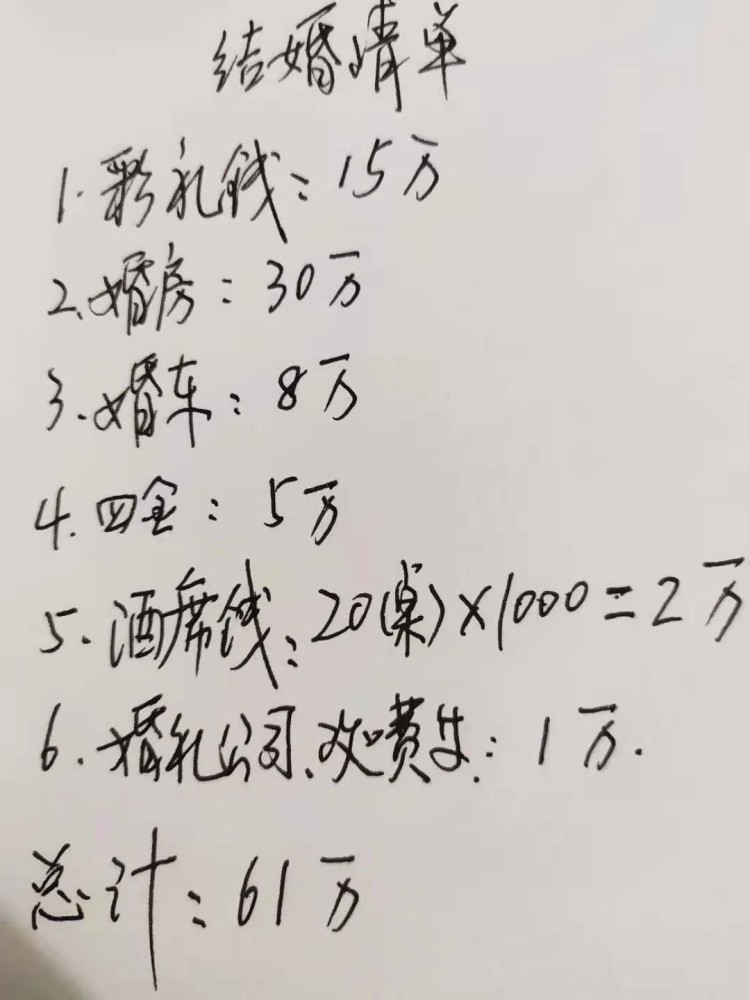 结婚清单
1.彩礼钱：15万
2.婚房：30万
3.婚车：8万
4.四金：5万
5.酒席钱：20(桌)×1000=2万
6.婚礼公司、欢喷失：1万.
总计：61万